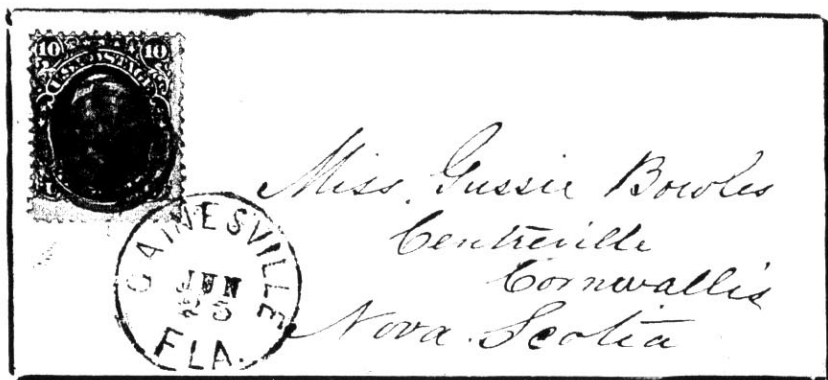 10 10
U.S. POSTAGE
GAINESVILLE
JUN
25
FLA.
Miss. Gussie Bowles
Centreville
Cornwallis
Nova. Scotia